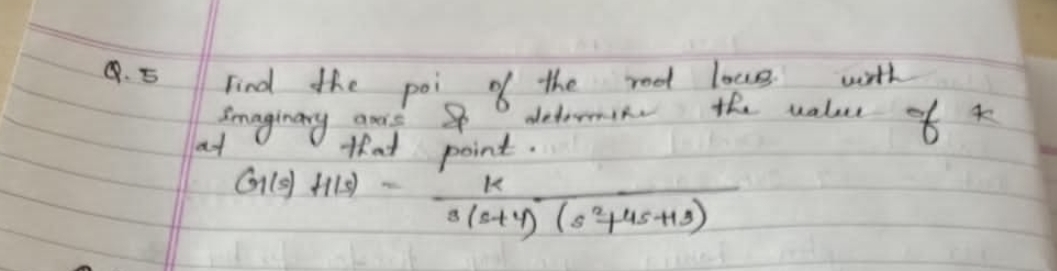 Q.5 Find the poi of the root locus with
imaginary axis & determine the value of k
at that point.
G(s) H(s) = K
s(s+4) (s²+4s+13)